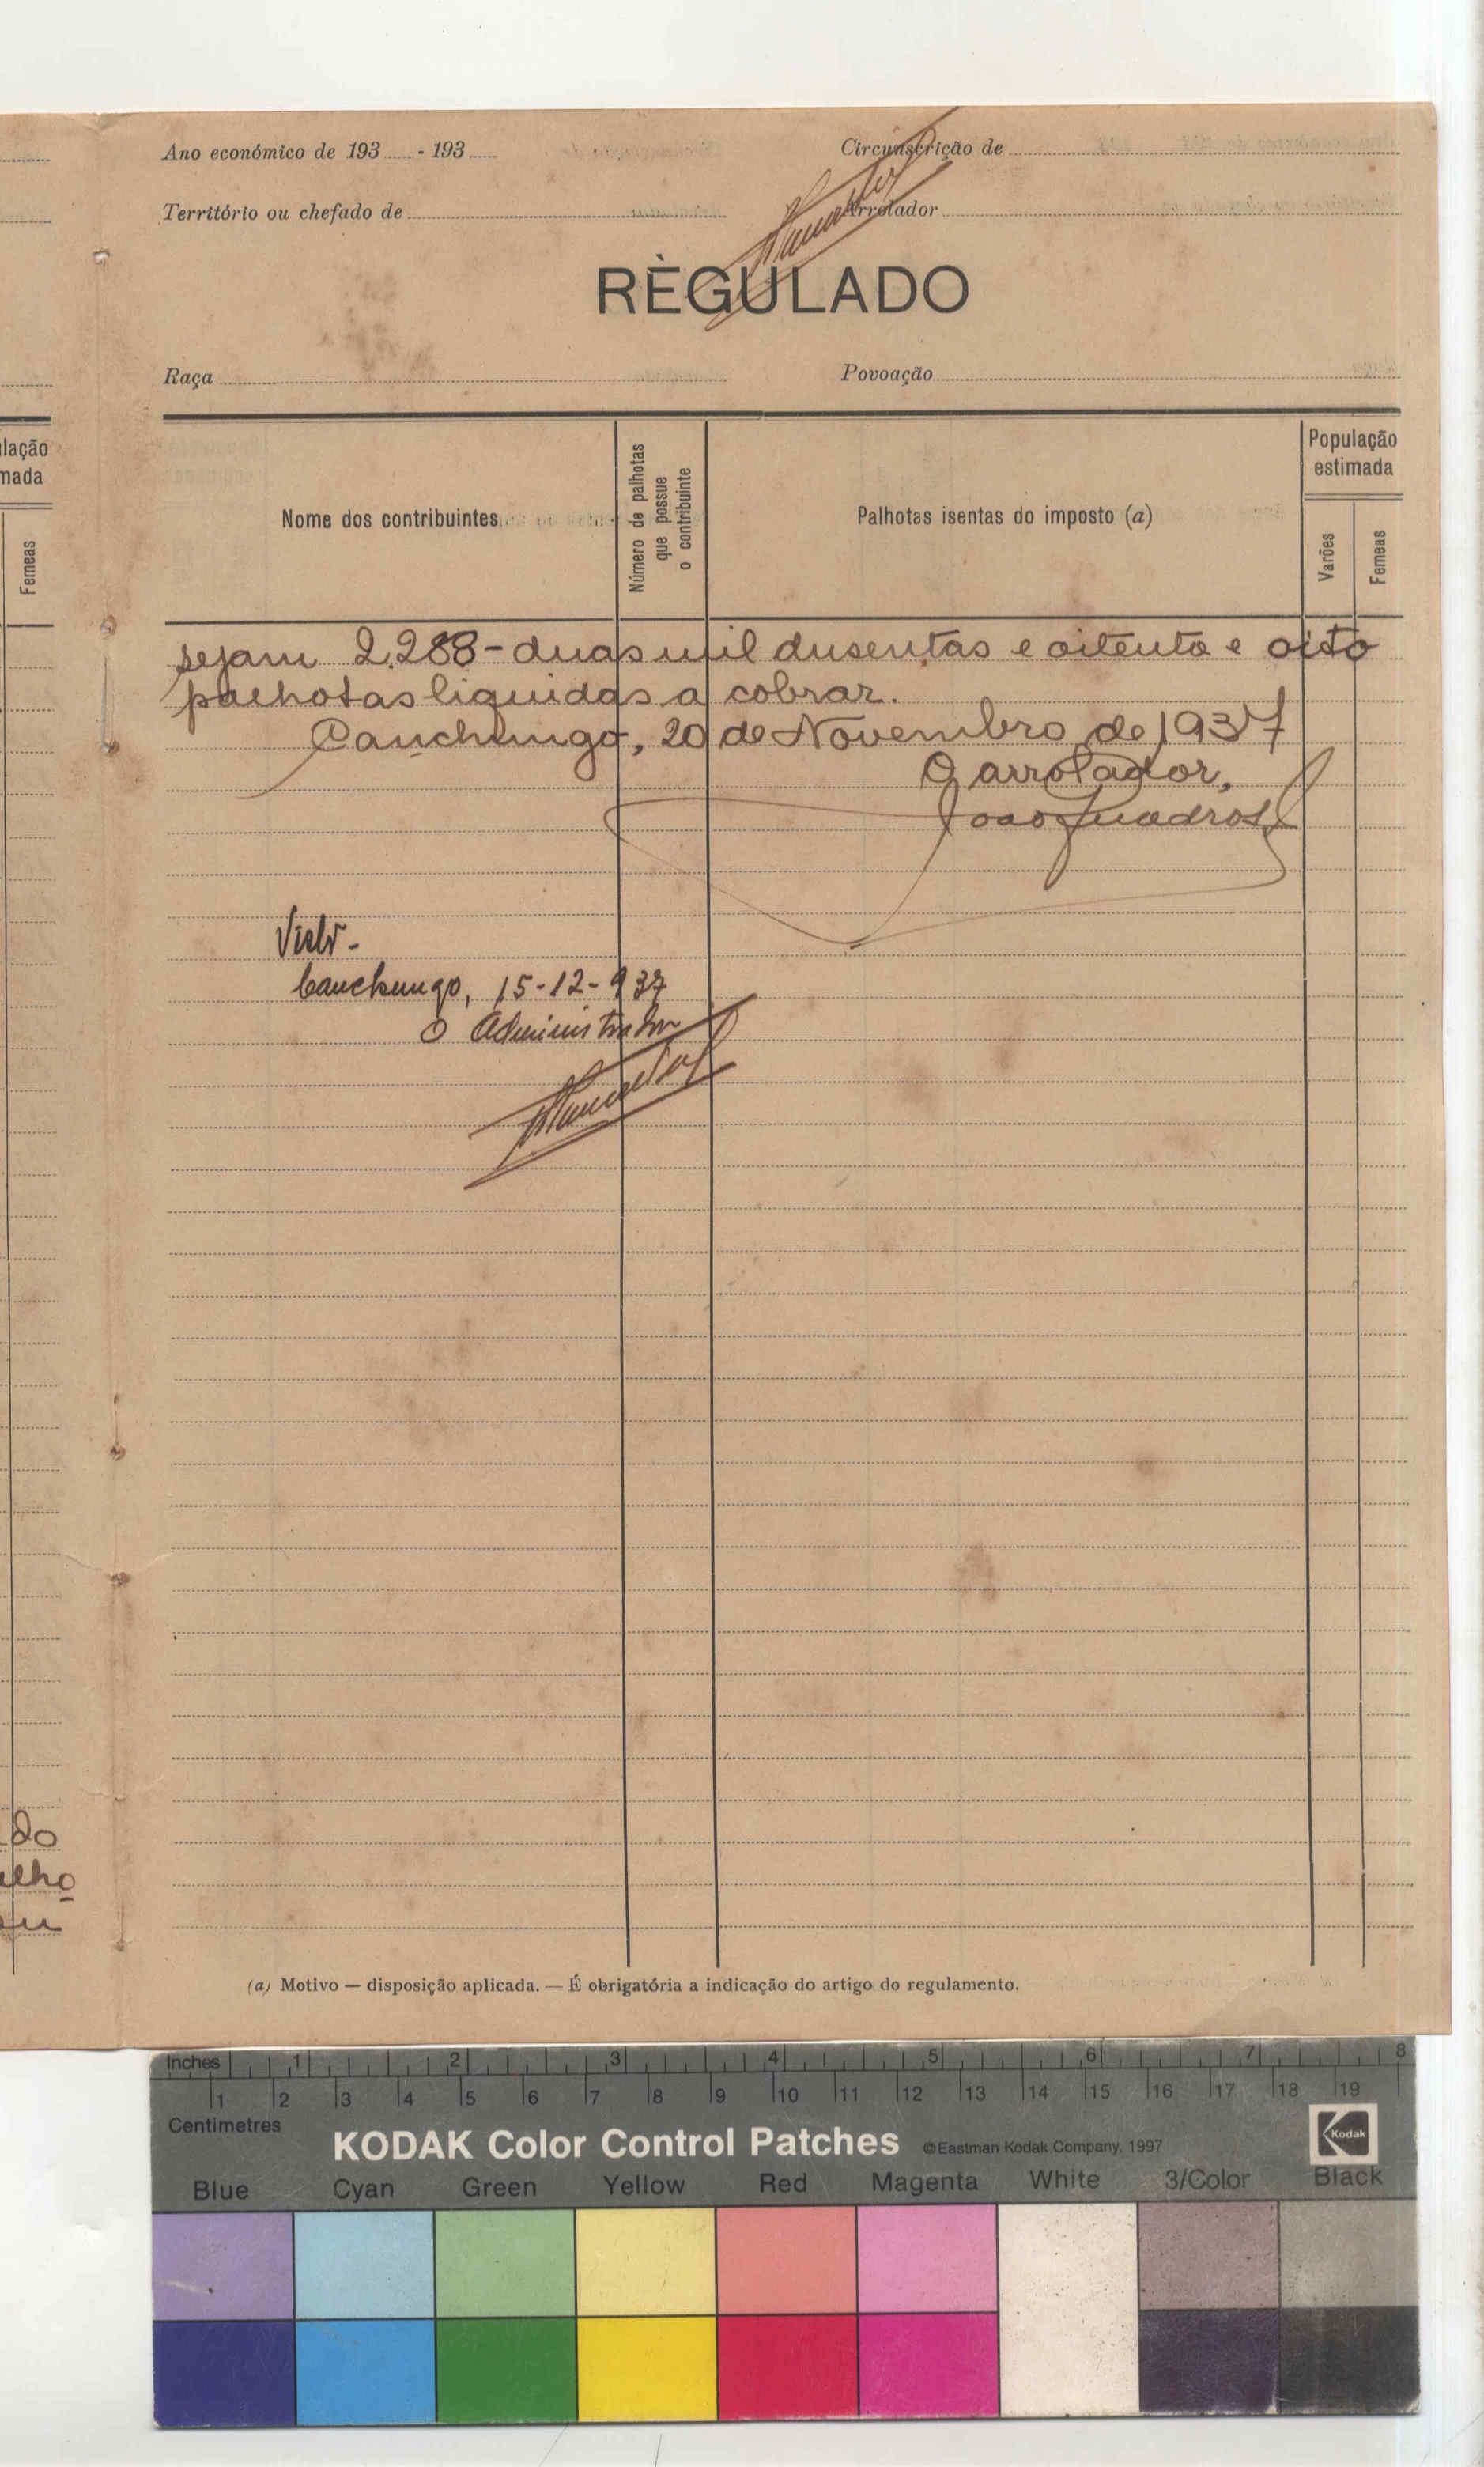 Ano económico de 193...... - 193......
Circunscrição de
Território ou chefado de
Arrolador
RÈGULADO
Raça
Povoação
lação
mada
Femeas
Nome dos contribuintes
Número de palhotas
que possue
o contribuinte
Palhotas isentas do imposto (a)
População
estimada
Varões
Femeas
sejam 2.288 - duas mil dusentas e oitenta e oito
palhotas liquidas a cobrar.
Canchungo, 20 de Novembro de 1937
O arrolador,
João Quadros
Visto -
Canchungo, 15-12-937
O Administrador
do
alho
(a) Motivo — disposição aplicada. — É obrigatória a indicação do artigo do regulamento.
Inches 1 2 3 4 5 6 7 8
1 2 3 4 5 6 7 8 9 10 11 12 13 14 15 16 17 18 19
Centimetres
KODAK Color Control Patches ©Eastman Kodak Company, 1997
Kodak
Blue Cyan Green Yellow Red Magenta White 3/Color Black